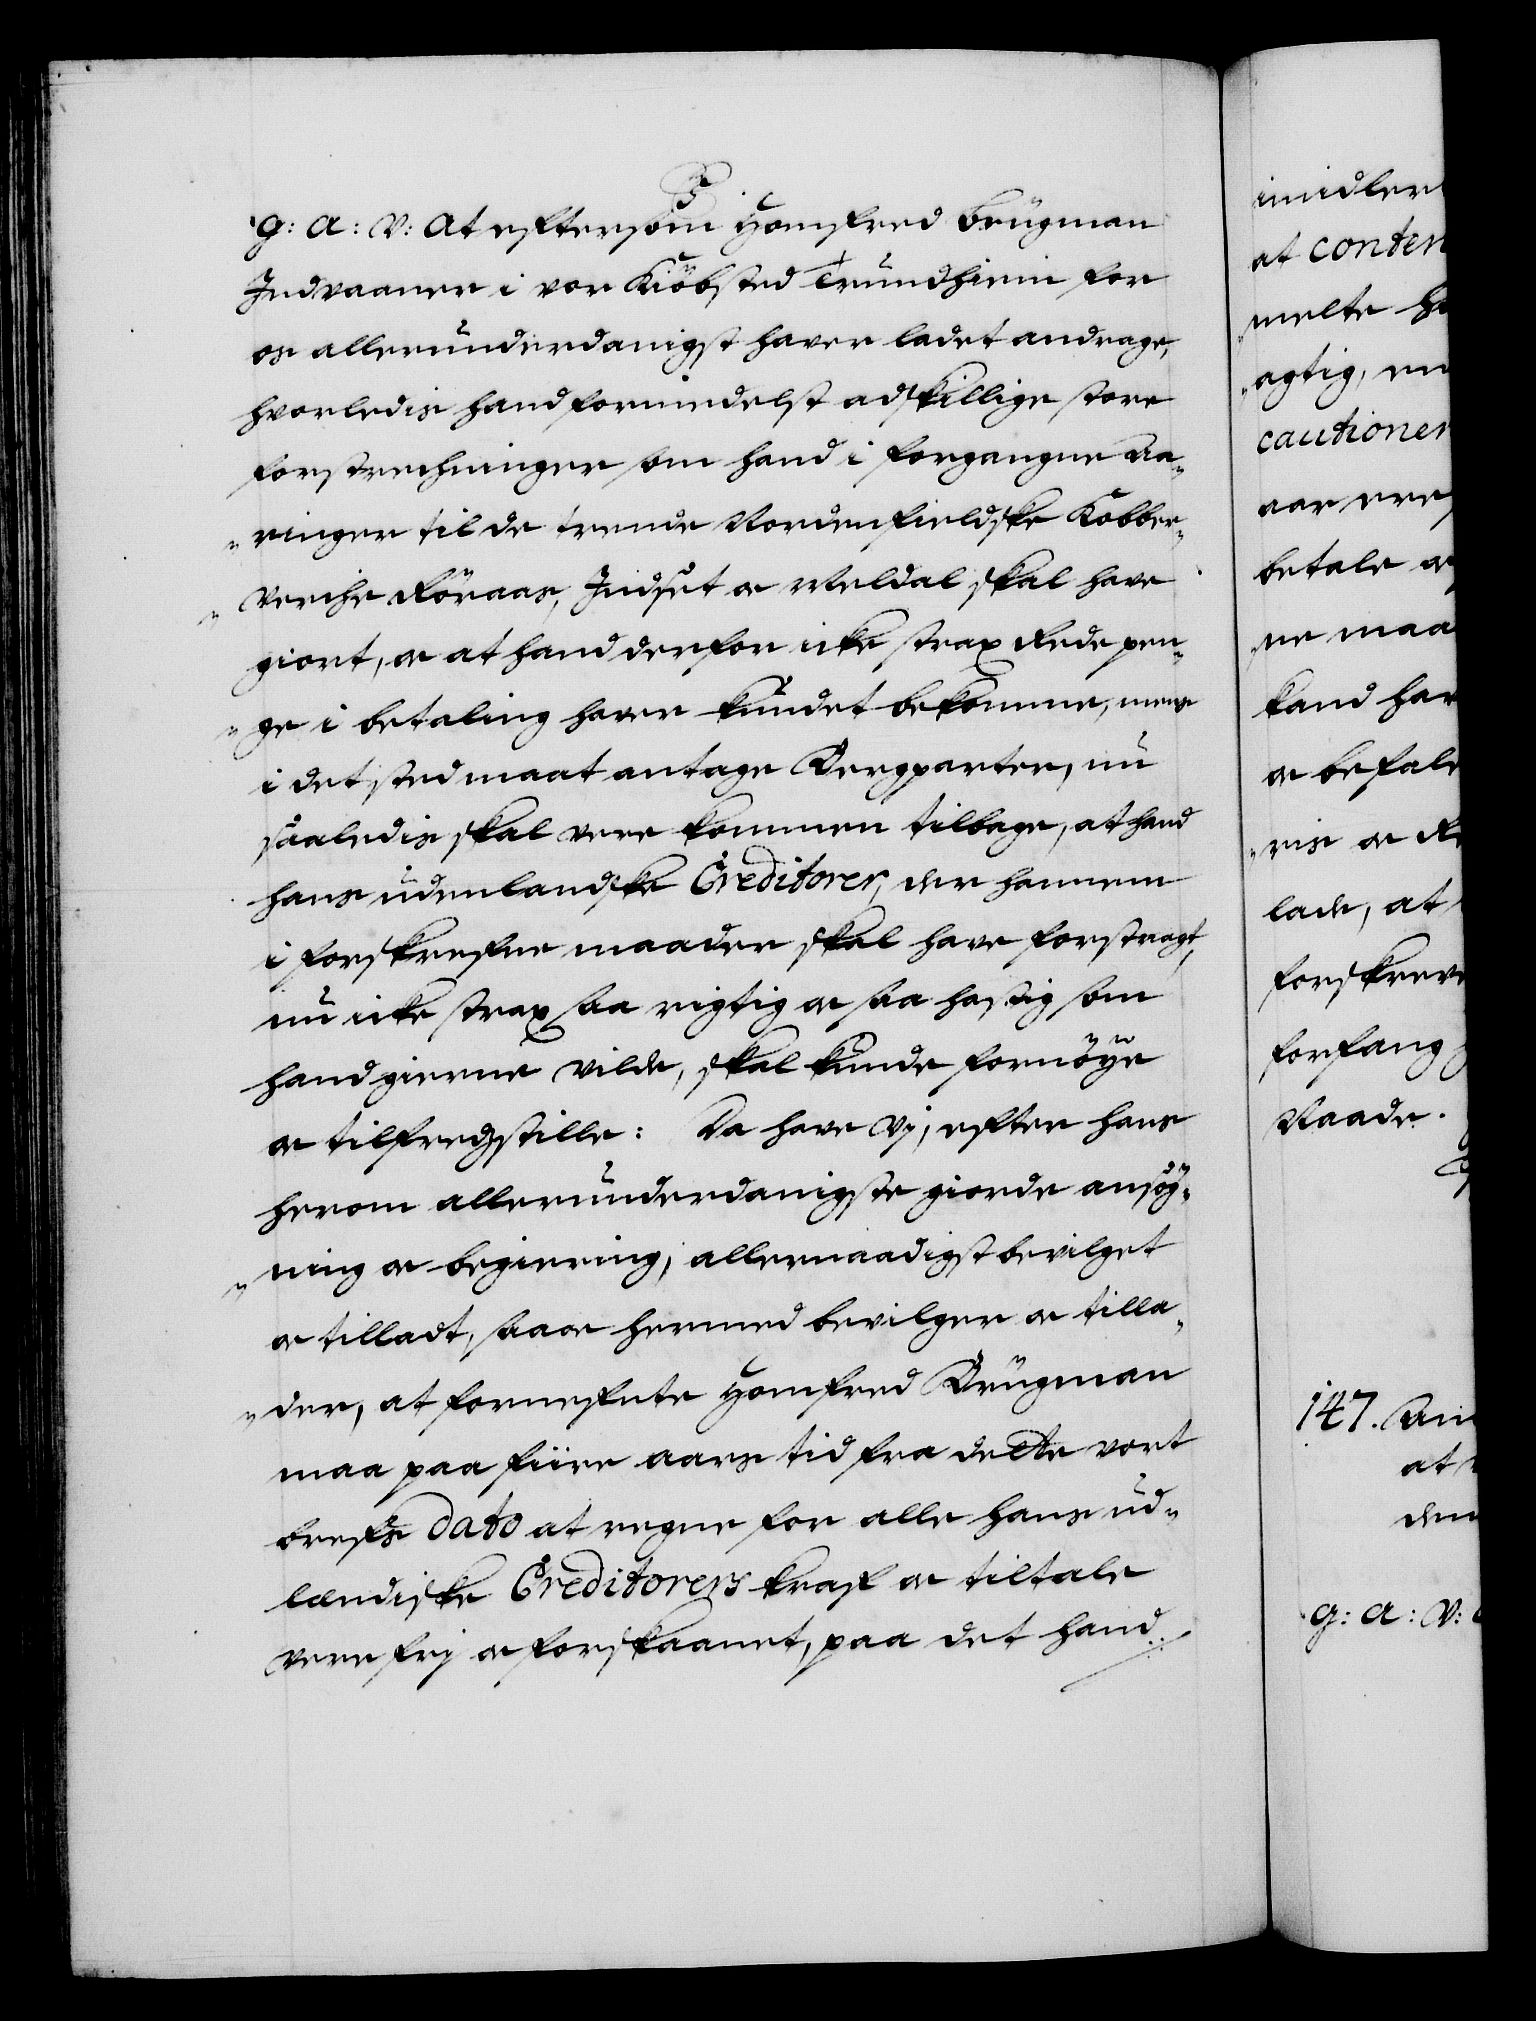 G: A: V: At eftersom Homfred Brügman
Indvaaner i vor Kiöbsted Trundhiem for
os allerunderdanigst haver ladet andrage,
hvorledis hand formedelst adskillige store
forstrechninger som hand i forgangne Aa-
ringer til de trende Nordenfieldske Kobber-
Verche Röraas, Indset og Meldal skal have
giort, og at hand derfor icke strax Rede pen-
ge i betaling haver kundet bekomme, mens
i det sted maat antage Bergparter, nu
saaledis skal vere kommen tilbage, at hand
hans udenlandske Creditorer, der hannem
i forskrefne maader skal have forstragt,
nu icke strax saa rigtig og saa hastig som
hand gierne vilde, skal kunde fornöye
og tilfredsstille: Da have Vj, efter hans
herom allerunderdanigste giorde ansög-
ning og begiering, allernaadigst bevilget
og tilladt, saa og hermed bevilger og tilla-
der, at fornefnte Homfred Brügman
maa paa fiire aars tid fra dette vort
brefs dato at regne for alle hans ud-
lændiske Creditorers kraf og tiltale
vere frj og forskaanet, paa det hand
imidler
at conten
melte
agtig, en
cautioner
aar ere
betale og
ne maa
kand hav
og befale
ris og
lade, at
forskreve
forfang
Naade.
147.
at
den
G: A: V: